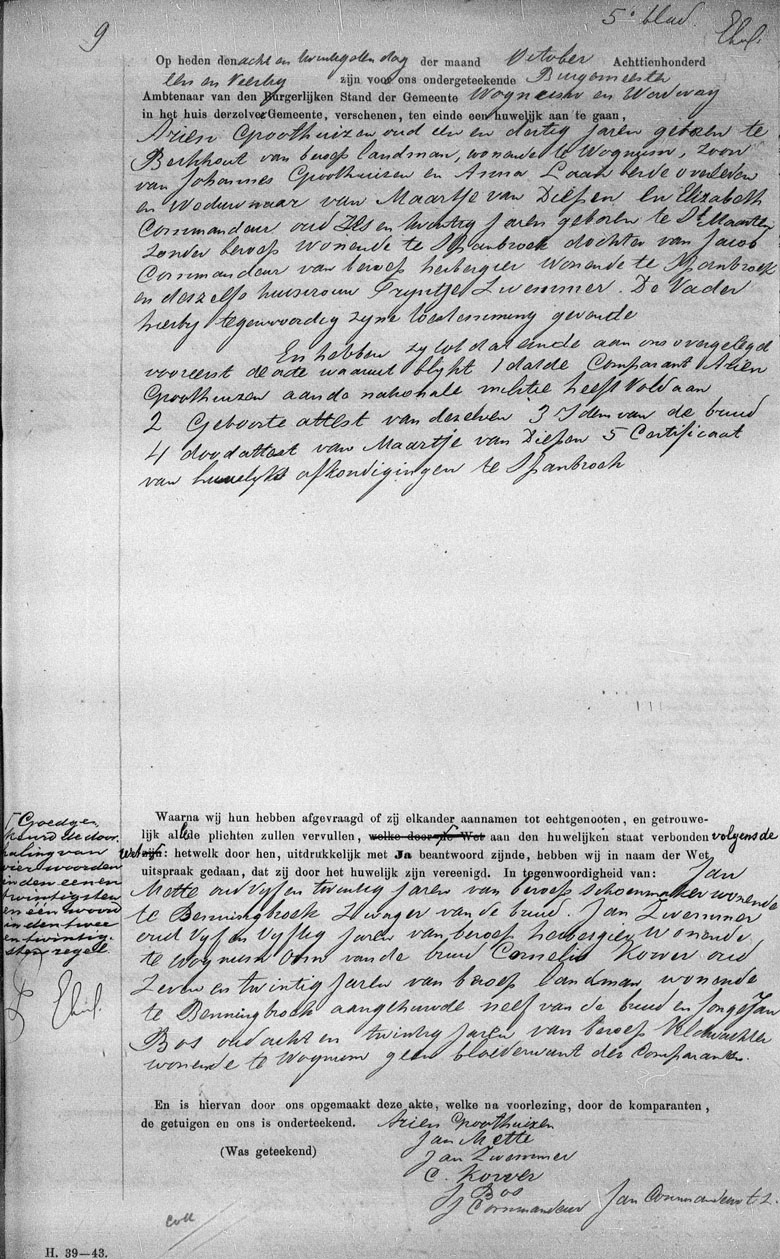 9
5e blad.
Op heden den acht en twintigsten dag der maand October Achttienhonderd
Een en Veertig zijn voor ons ondergeteekende Burgemeester
Ambtenaar van den Burgerlijken Stand der Gemeente Wognum en Wadway
in het huis derzelver Gemeente, verschenen, ten einde een huwelijk aan te gaan,
Arien Groothuizen oud een en dertig jaren geboren te
Berkhout van beroep landman, wonende te Wognum, zoon
van Johannes Groothuizen en Anna Laan beide overleden
en Weduwnaar van Maartje van Diepen En Elizabeth
Commandeur oud Zes en twintig jaren geboren te St Maarten
zonder beroep wonende te Spanbroek dochter van Jacob
Commandeur van beroep herbergier wonende te Spanbroek
en deszelfs huisvrouw Trijntje Zwemmer. De Vader
hierbij tegenwoordig zijne toestemming gevende
En hebben zij tot dat einde aan ons overgelegd
vooreerst de acte waaruit blijkt 1 dat de Comparant Arien
Groothuizen aan de nationale militie heeft Voldaan
2 Geboorte attest van dezelven 3 Idem van de bruid
4 dood attest van Maartje van Diepen 5 Certificaat
van huwelijks afkondigingen te Spanbroek
Waarna wij hun hebben afgevraagd of zij elkander aannamen tot echtgenooten, en getrouwe-
lijk alle de plichten zullen vervullen, welke door de Wet aan den huwelijken staat verbonden volgens de
Wet zijn: hetwelk door hen, uitdrukkelijk met Ja beantwoord zijnde, hebben wij in naam der Wet
uitspraak gedaan, dat zij door het huwelijk zijn vereenigd. In tegenwoordigheid van: Jan
Mette oud Vijf en twintig jaren van beroep Schoenmaker wonende
te Benningbroek Zwager van de bruid. Jan Zwemmer
oud Vijf en Vijftig jaren van beroep herbergier wonende
te Wognum Oom van de bruid Cornelis Kower oud
Zeven en twintig jaren van beroep landman wonende
te Benningbroek aangehuwde neef van de bruid en Jonge Jan
Bos oud acht en twintig jaren van beroep Veldwachter
wonende te Wognum geen bloedverwant der Comparanten.
Goedge
keurd de door
haling van
vier woorden
in den een en
twintigsten
en een woord
in den twee
en twintig-
sten regel
En is hiervan door ons opgemaakt deze akte, welke na voorlezing, door de komparanten,
de getuigen en ons is onderteekend. Arien Groothuizen
(Was geteekend)
Jan Mette
Jan Zwemmer
C. Kower
J Bos
J Commandeur
Jan Commandeur
coll
H. 39—43.